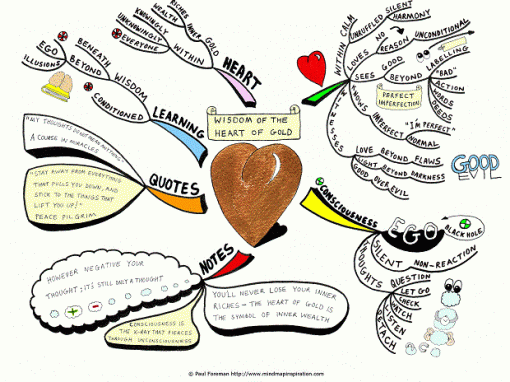 WISDOM OF THE
HEART OF GOLD
HEART
WITHIN
INNER GOLD
RICHES
WEALTH
KNOWINGLY
UNKNOWINGLY
EVERYONE
LEARNING
WISDOM
BENEATH
BEYOND
EGO
ILLUSIONS
CONDITIONED
QUOTES
A COURSE IN MIRACLES
"STAY AWAY FROM EVERYTHING
THAT PULLS YOU DOWN, AND
STICK TO THE THINGS THAT
LIFT YOU UP!"
PEACE PILGRIM
NOTES
HOWEVER NEGATIVE YOUR
THOUGHT; ITS STILL ONLY A THOUGHT
CONSCIOUSNESS IS
THE X-RAY THAT PIERCES
THROUGH UNCONSCIOUSNESS
YOU'LL NEVER LOSE YOUR INNER
RICHES - THE HEART OF GOLD IS
THE SYMBOL OF INNER WEALTH
WITHIN CALM
UNRUFFLED SILENT
HARMONY
LOVES NO REASON
UNCONDITIONAL
SEES GOOD BEYOND
LABELLING
"BAD"
ACTION
WORDS
DEEDS
PERFECT
IMPERFECTION
KNOWS IMPERFECT NORMAL
"I'M PERFECT"
WITNESSES
LOVE BEYOND FLAWS
LIGHT BEYOND DARKNESS
GOOD OVER EVIL
GOOD
EVIL
CONSCIOUSNESS
EGO
BLACK HOLE
SILENT NON-REACTION
THOUGHTS
QUESTION
LET GO
CHECK
WATCH
LISTEN
DETACH
© Paul Foreman http://www.mindmapinspiration.com